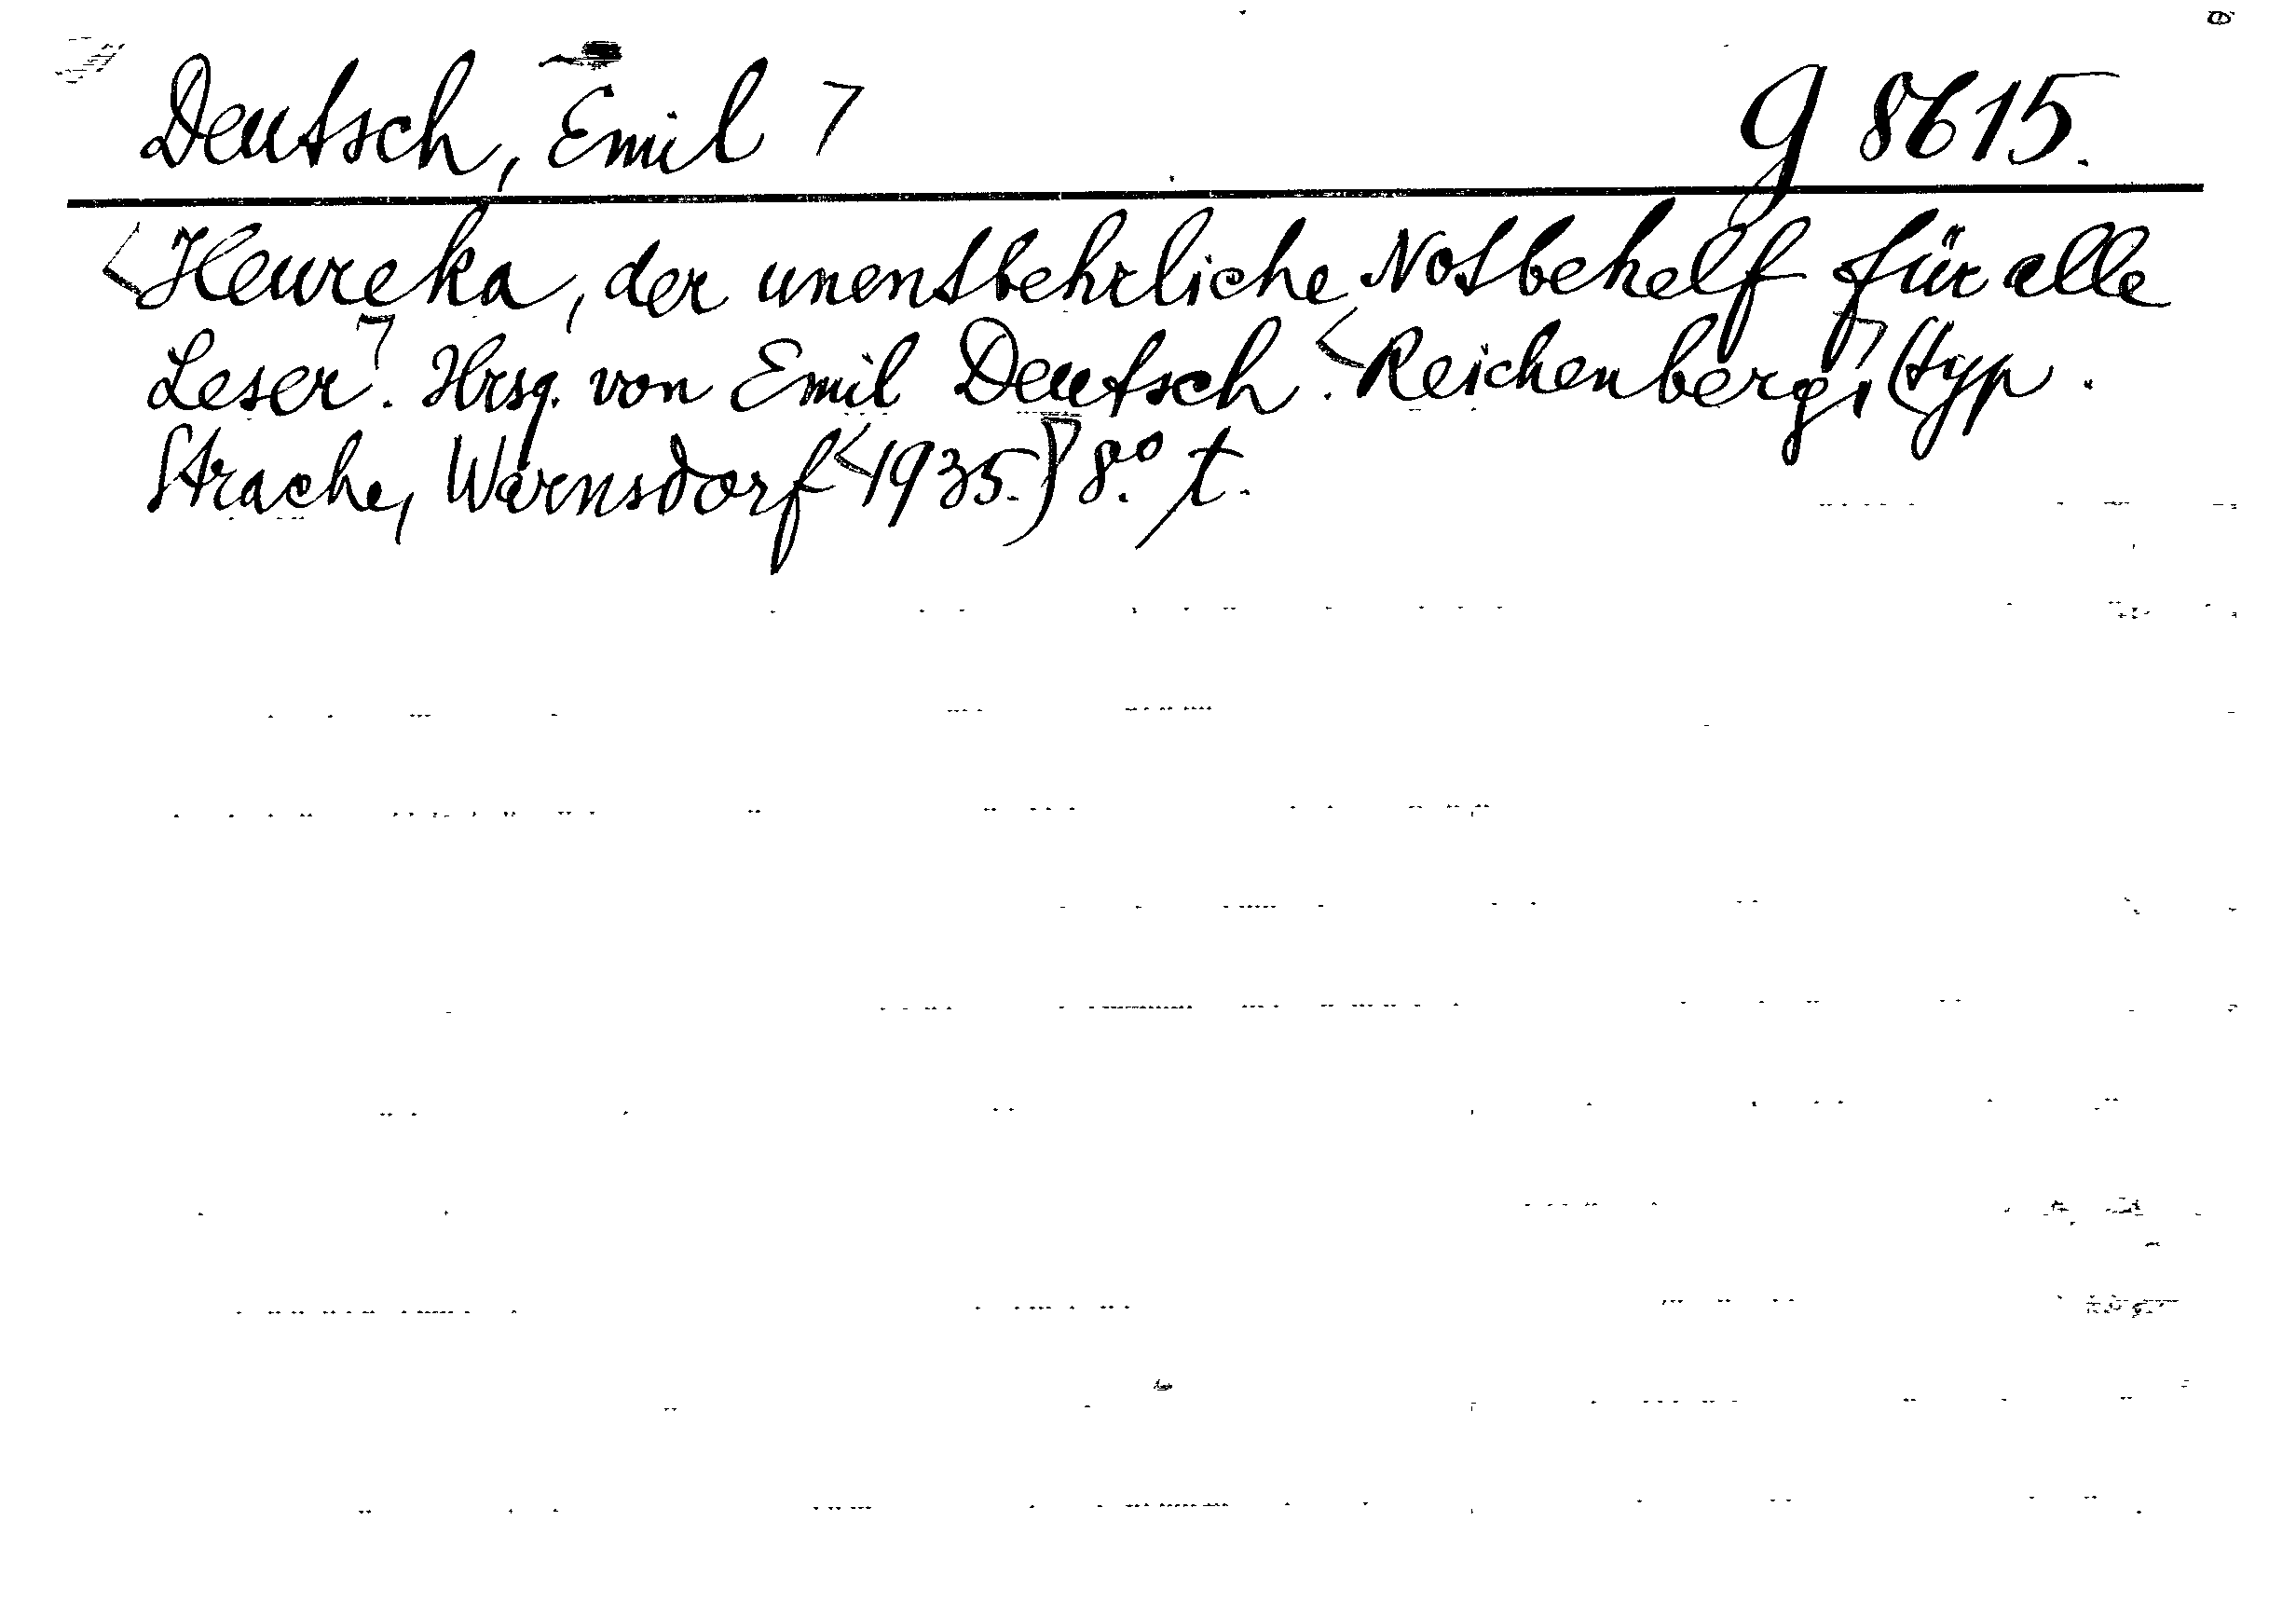 Deutsch, Emil 7 g 8615.
<Heureka, der unentbehrliche Notbehelf für alle
Leser7. Hrsg. von Emil Deutsch. <Reichenberg,7 (typ.
Strache, Warnsdorf <1935.7) 8.° t.